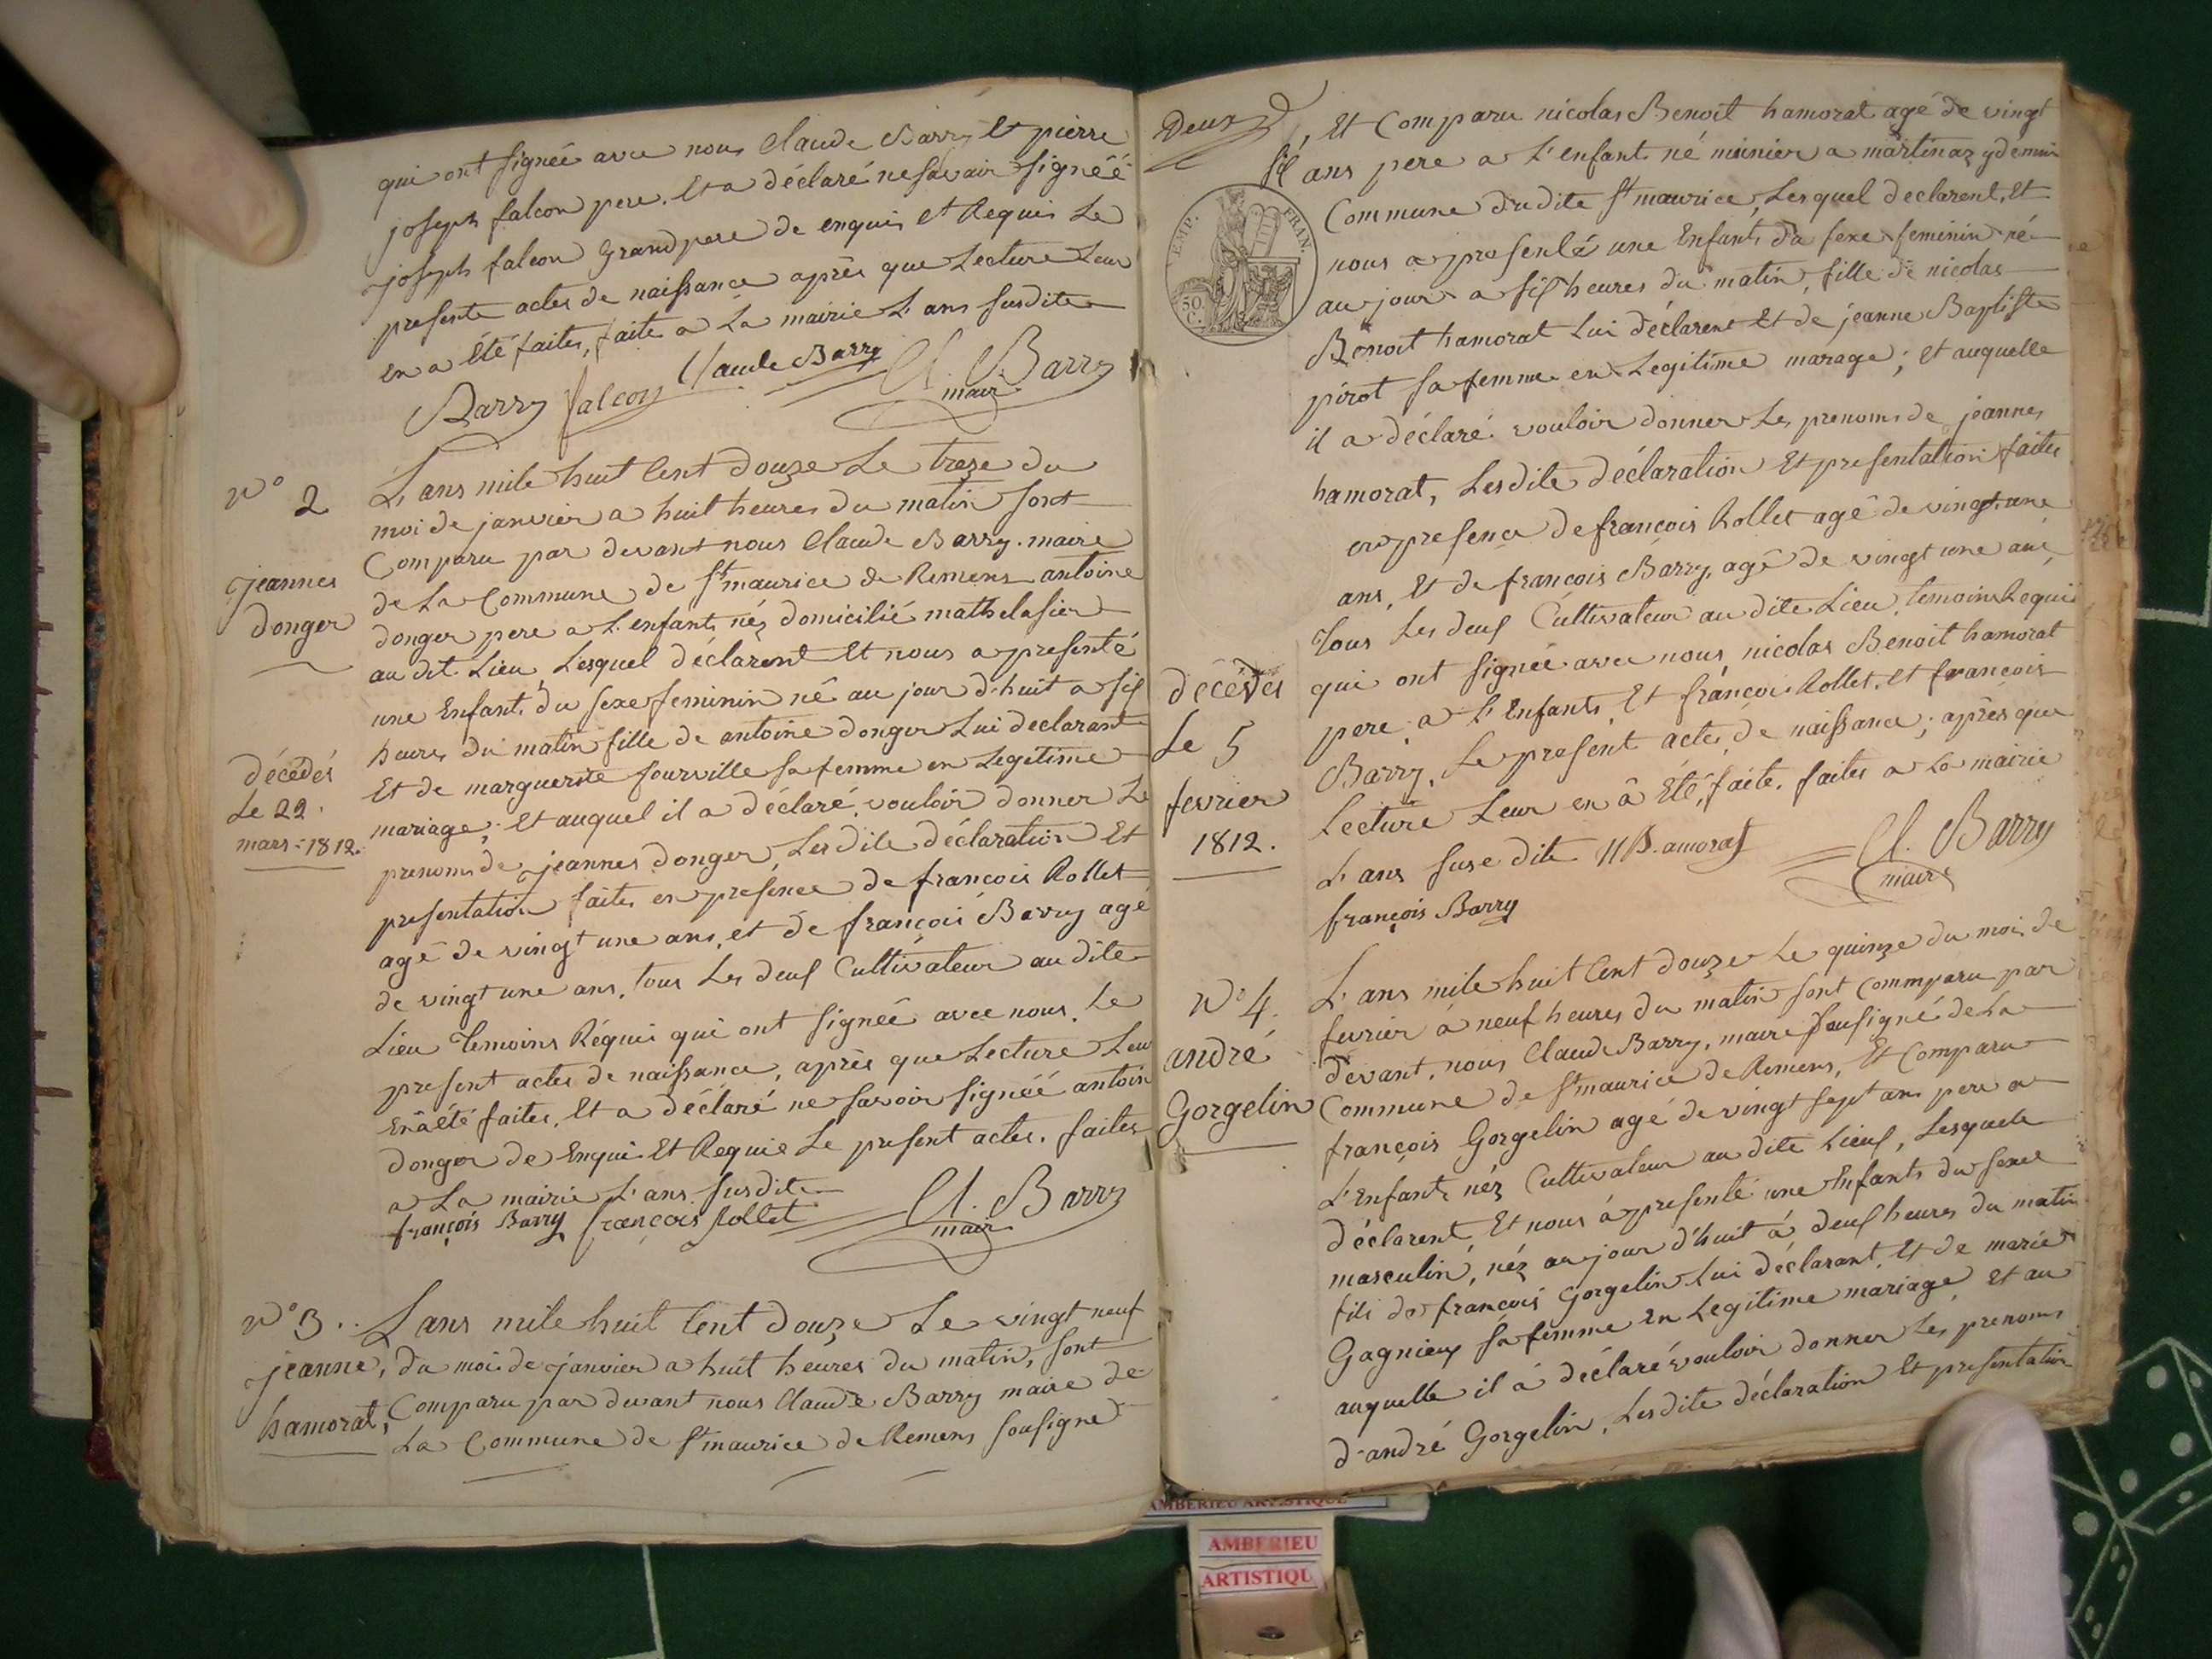 qui ont signée avec nous Claude Barry et pierre
joseph falcon pere. Et a déclaré ne savoir signéé
joseph falcon grand pere de enquis et Requis Le
presente actes de naissance après que Lecture Leur
en a été faites, faite a La mairie L'ans susdite
Barry falcon Claude Barry Cl. Barry
mair
N° 2
L'ans mile huit Cent douze Le treze du
moi de janvier a huit heures du matin sont
Comparu par devant nous Claude Barry. maire
de La Commune de St maurice de Remens antoine
jeannes
donger
donger pere a L'enfant néz domicilié mathelasier
au dit Lieu, Lesquel déclarent Et nous a presenté
une Enfant, du sexe feminin né au jour d'huit a six
heures du matin fille de antoine donger Lui declarant
Et de marguerite fourville sa femme en Legitime
décédés
Le 22.
mars-1812.
mariage, Et auquel il a déclaré, vouloir donner Le
prenoms de jeannes donger, Lesdite déclaration Et
presentation faites en presence de françois Rollet
agé de vingt une ans, et de françois Barry agé
de vingt une ans, tous Les deux Cultivateur au dite
Lieu temoins Réquis qui ont signéé avec nous, Le
present actes de naissance, après que Lecture Leur
En a été faites, Et a déclaré ne savoir signéé antoin
donger de Enqui Et Requie Le present actes. faites
a La mairie L'ans susdite
françois Barry françois Rollet Cl. Barry
mair
N° 3..
jeanne,
hamorat,
L'ans mile huit Cent douze Le vingt neuf
du moi de janvier a huit héures du matin, sont
Comparu par devant nous Claude Barry maire de
La Commune de St maurice de Remens sousigné
Deux
TEMP. FRAN.
50 C.
, Et Comparu nicolas Benoit hamorat agé de vingt
six ans pere a L'enfant né munier a martinaz
Commune du dite St maurice, Lesquel declarent, Et
nous a presenté une Enfant, du sexe feminin né
au jour a six heures du matin, fille de nicolas
Benoit hamorat Lui déclarent Et de jeanne Baptiste
pirot sa femme en Legitime marage; et auquelle
il a déclaré vouloir donner Les prenoms de jeannes
hamorat, Lesdite déclaration Et presentation faites
en presence de francois Rollet agé de vingt une
ans, Et de françois Barry, agé de vingt une ans,
Tous Les deux Cultivateur au dite Lieu, temoins Requis
qui ont signéé avec nous, nicolas Benoit hamorat
pere, a L'Enfants, Et françois Rollet, et françois
Barry, Le present actes de naissance; après que
Lecture Leur en a Eté, faite. faites a La mairie
L'ans suse dite N B. amorat Cl. Barry
mair
françois Barry
décédés
Le 5
fevrier
1812.
N° 4.
andré
Gorgelin
L'ans mile huit Cent douze Le quinze du moi de
fevrier à neuf heures du matin sont Commparu par
devant, nous Claude Barry, maire sousigné de La
Commune de St maurice de Remens, Et Comparu
françois Gorgelin agé de vingt sept ans pere a
L'Enfant néz Cultivateur au dite Lieux, Lesquele
déclarent Et nous a presenté une Enfants du sexe
masculin, néz au jour d'huit à deux heures du matin
fils de françois Gorgelin Lui déclarant, Et de marie
Gagnieux sa femme En Legitime mariage, et au
auquelle il a déclaré vouloir donner Les prenoms
d'andré Gorgelin, Lesdite déclaration Et presentation
AMBERIEU ARTISTIQUE
AMBERIEU
ARTISTIQU